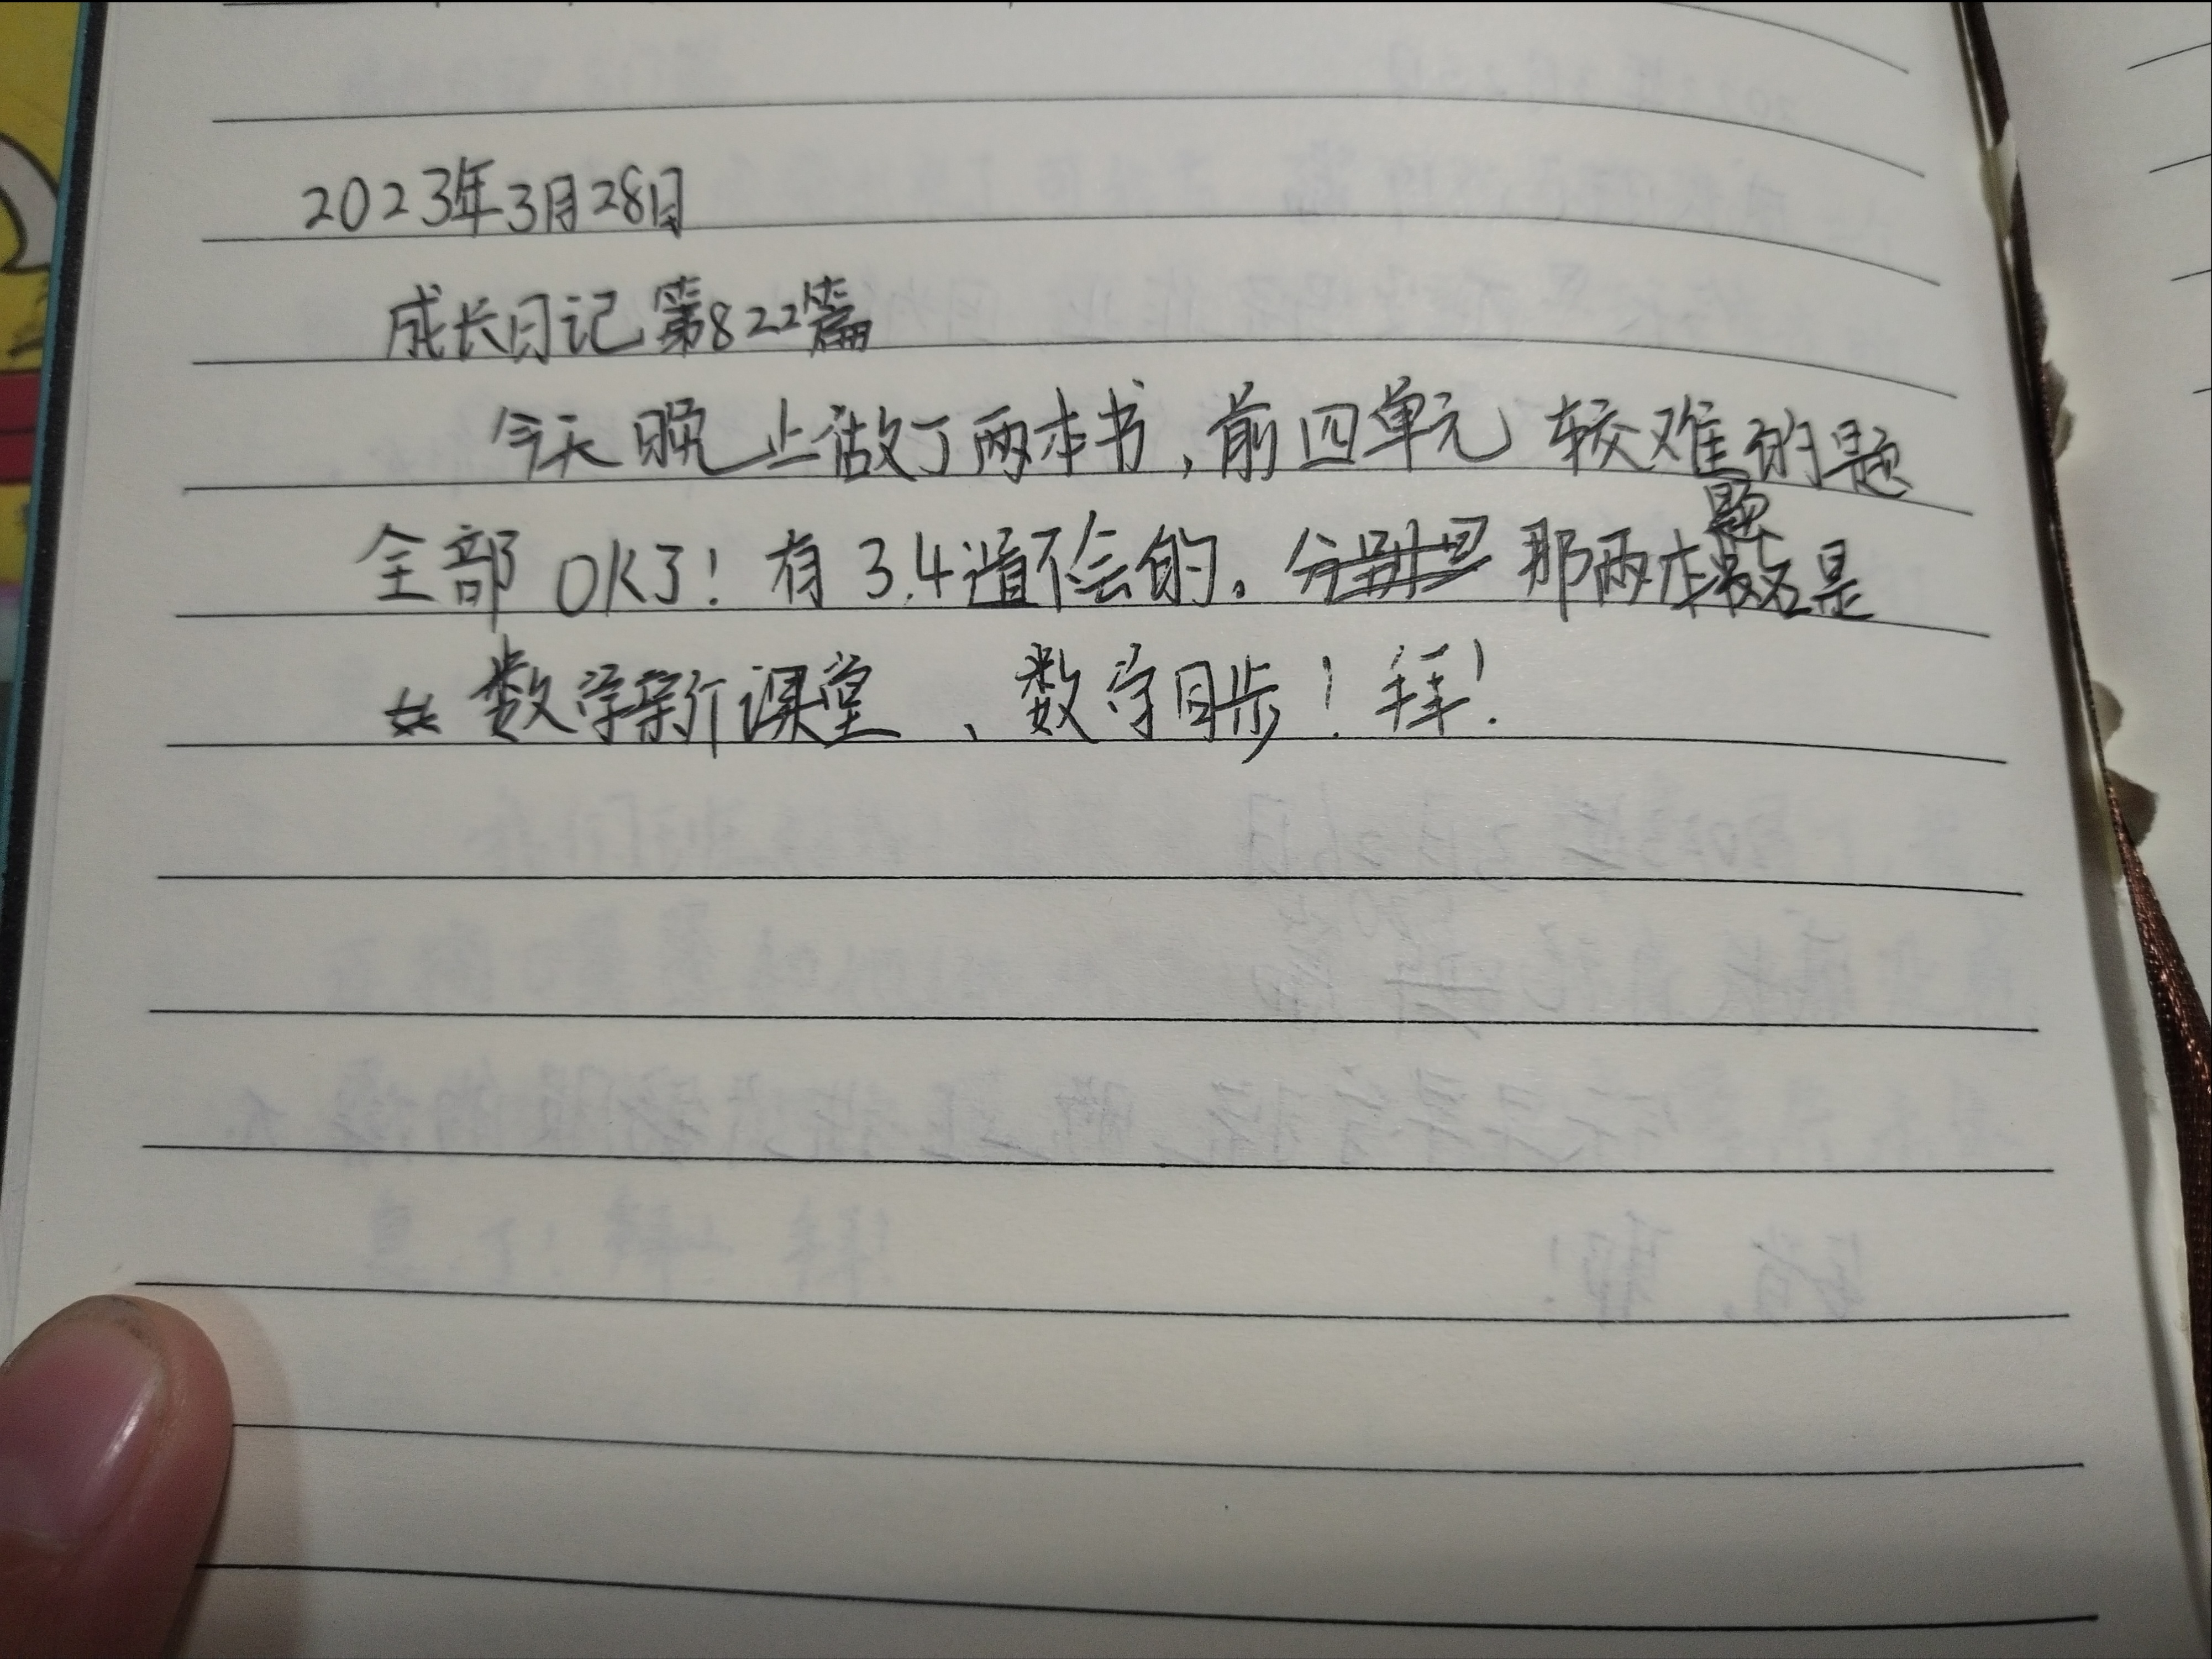 2023年3月28日
成长日记第822篇
今天晚上做了两本书，前四单元较难的题
全部OK了！有3.4道不会的。那两本题是
数学新课堂、数学同步！拜！